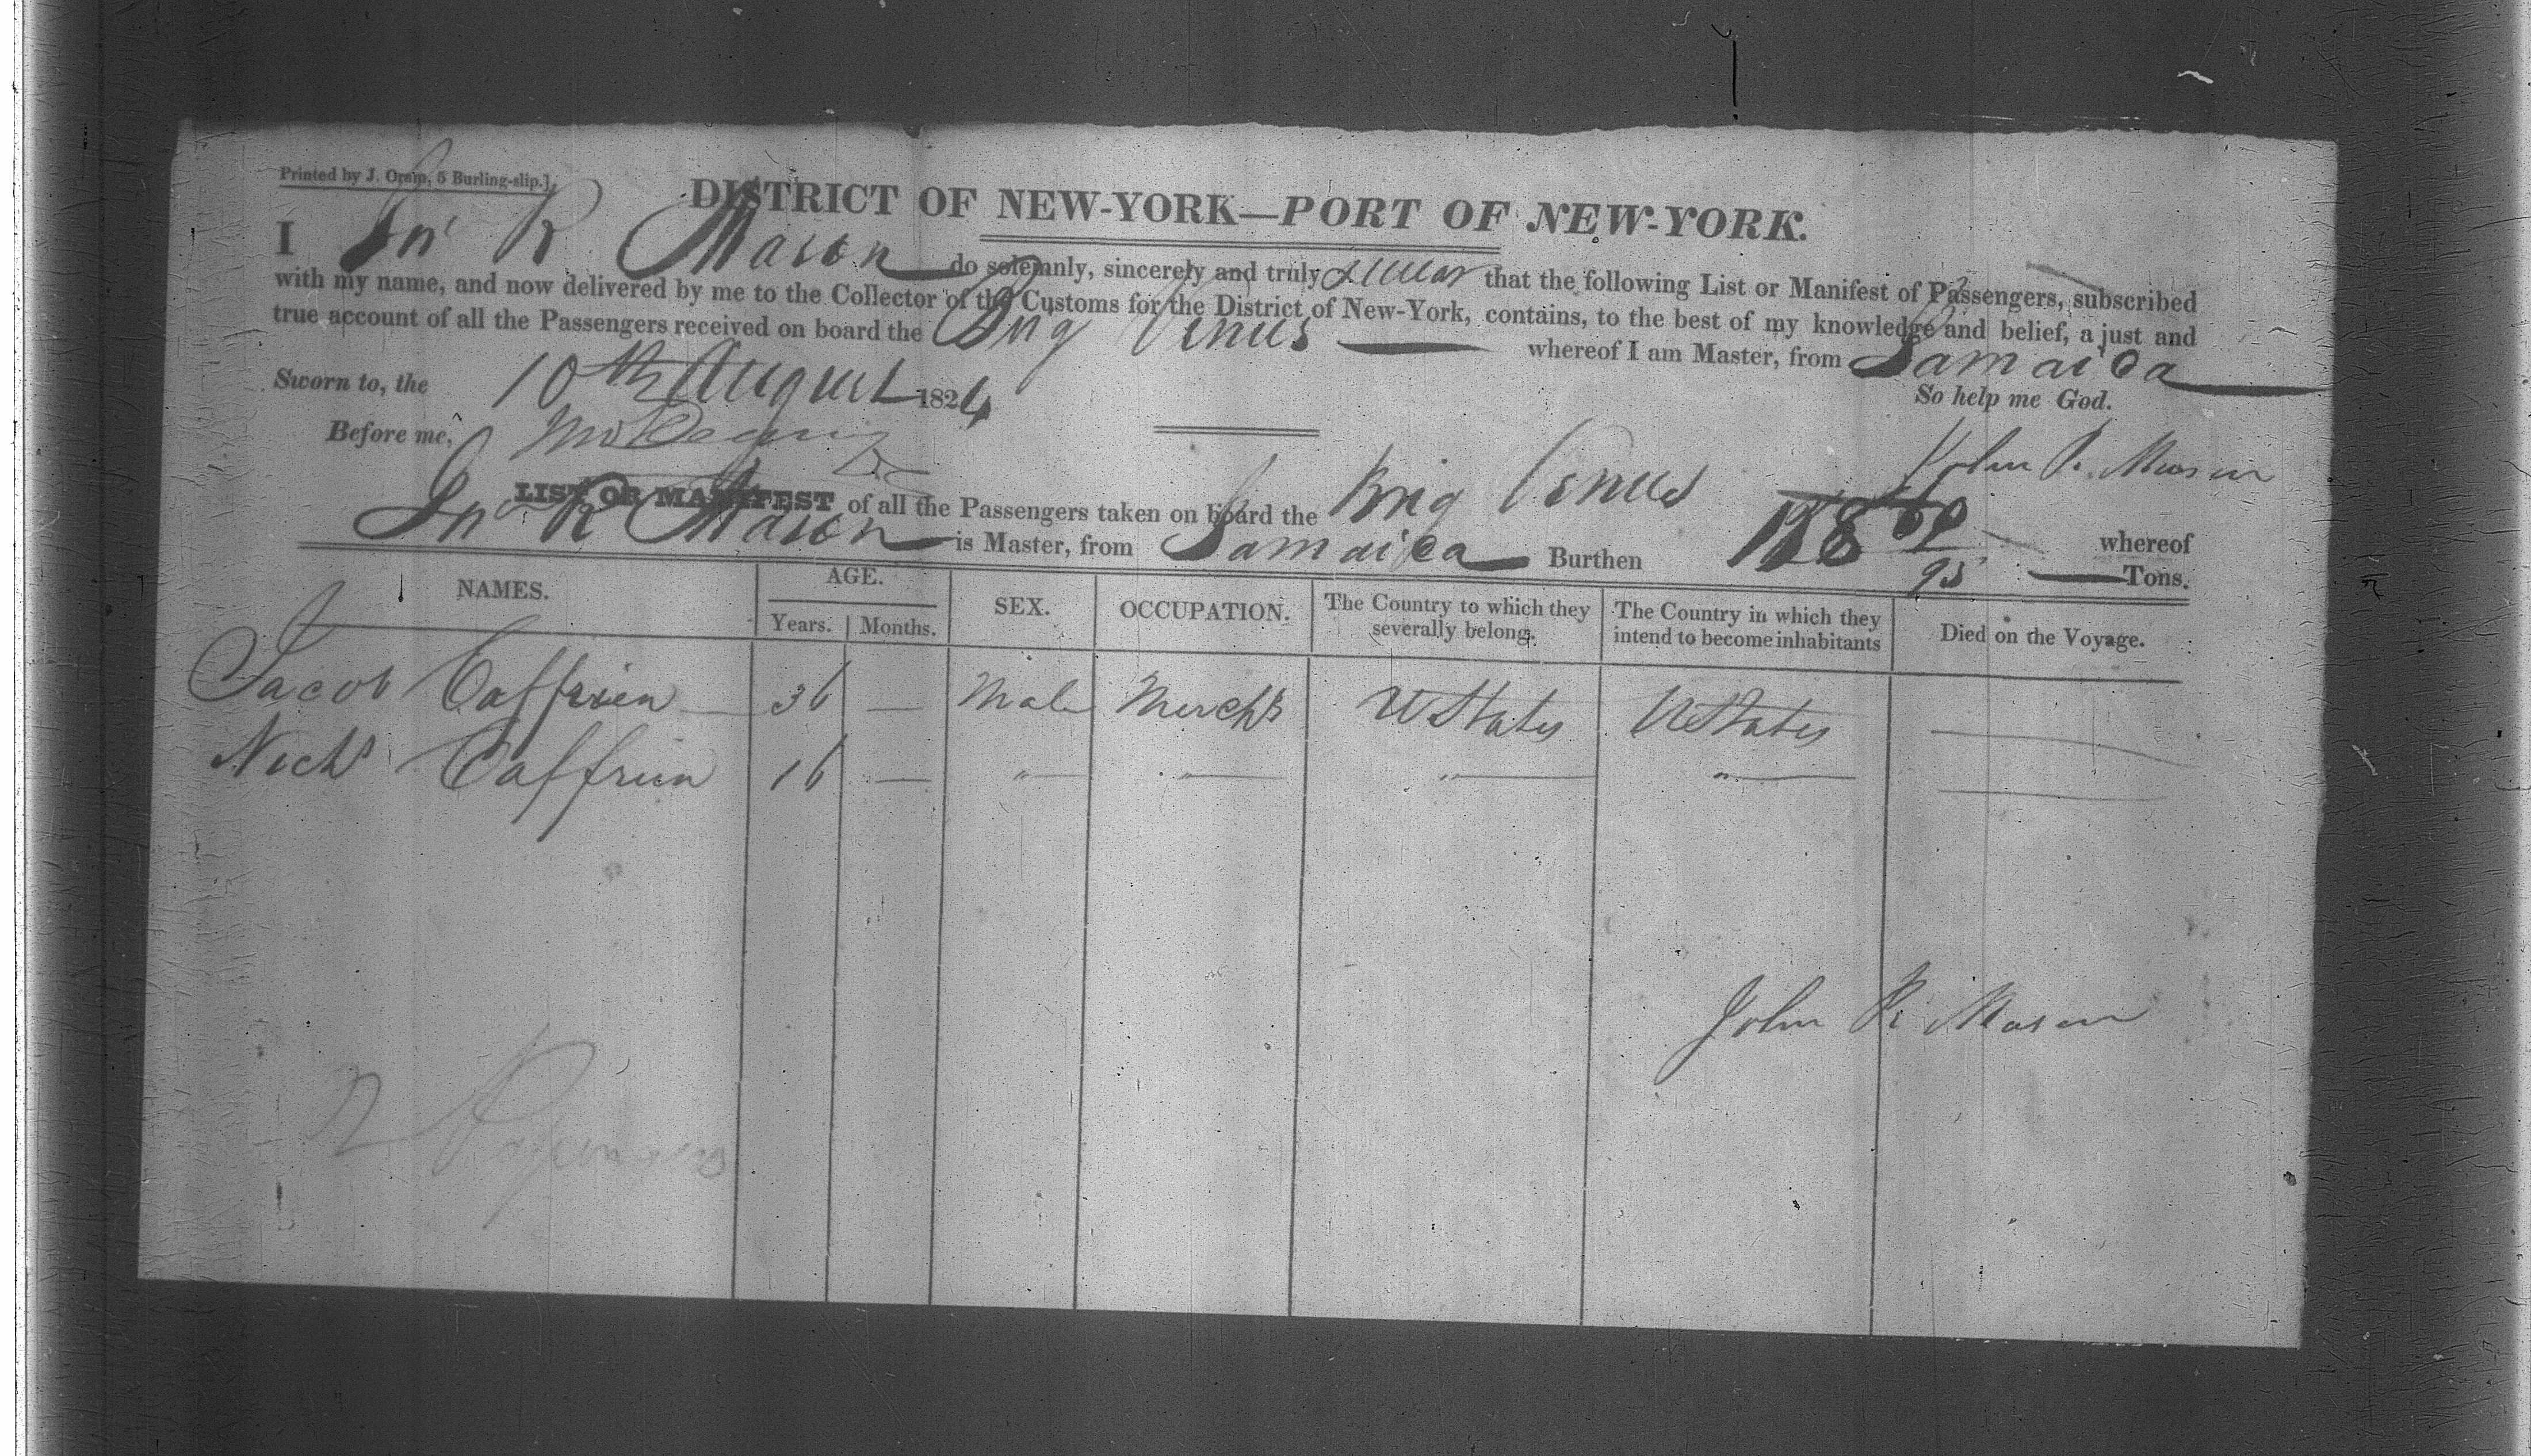 Printed by J. Oram, 5 Burling-slip.]
DISTRICT OF NEW-YORK—PORT OF NEW-YORK.
I Jnº R Mason do solemnly, sincerely and truly swear that the following List or Manifest of Passengers, subscribed
with my name, and now delivered by me to the Collector of the Customs for the District of New-York, contains, to the best of my knowledge and belief, a just and
true account of all the Passengers received on board the Brig Venus whereof I am Master, from Jamaica
Sworn to, the 10th August 1824 So help me God.
Before me,
John R. Mason
LIST OR MANIFEST of all the Passengers taken on board the Brig Venus whereof
Jnº R Mason is Master, from Jamaica Burthen Tons.
NAMES. AGE. SEX. OCCUPATION. The Country to which they severally belong. The Country in which they intend to become inhabitants Died on the Voyage.
Years. Months.
Jacob Caffrien 36 — Male Merchts U States U States —
Nichs Caffrien 16 — " " " " —
John R Mason
2 Passengers